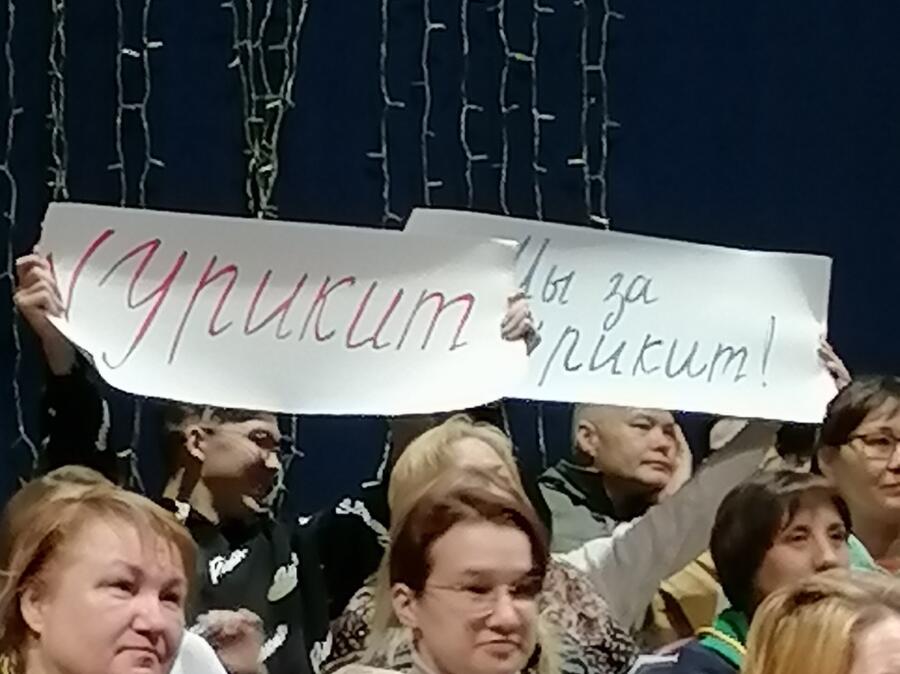 Урикит
Мы за
Урикит!